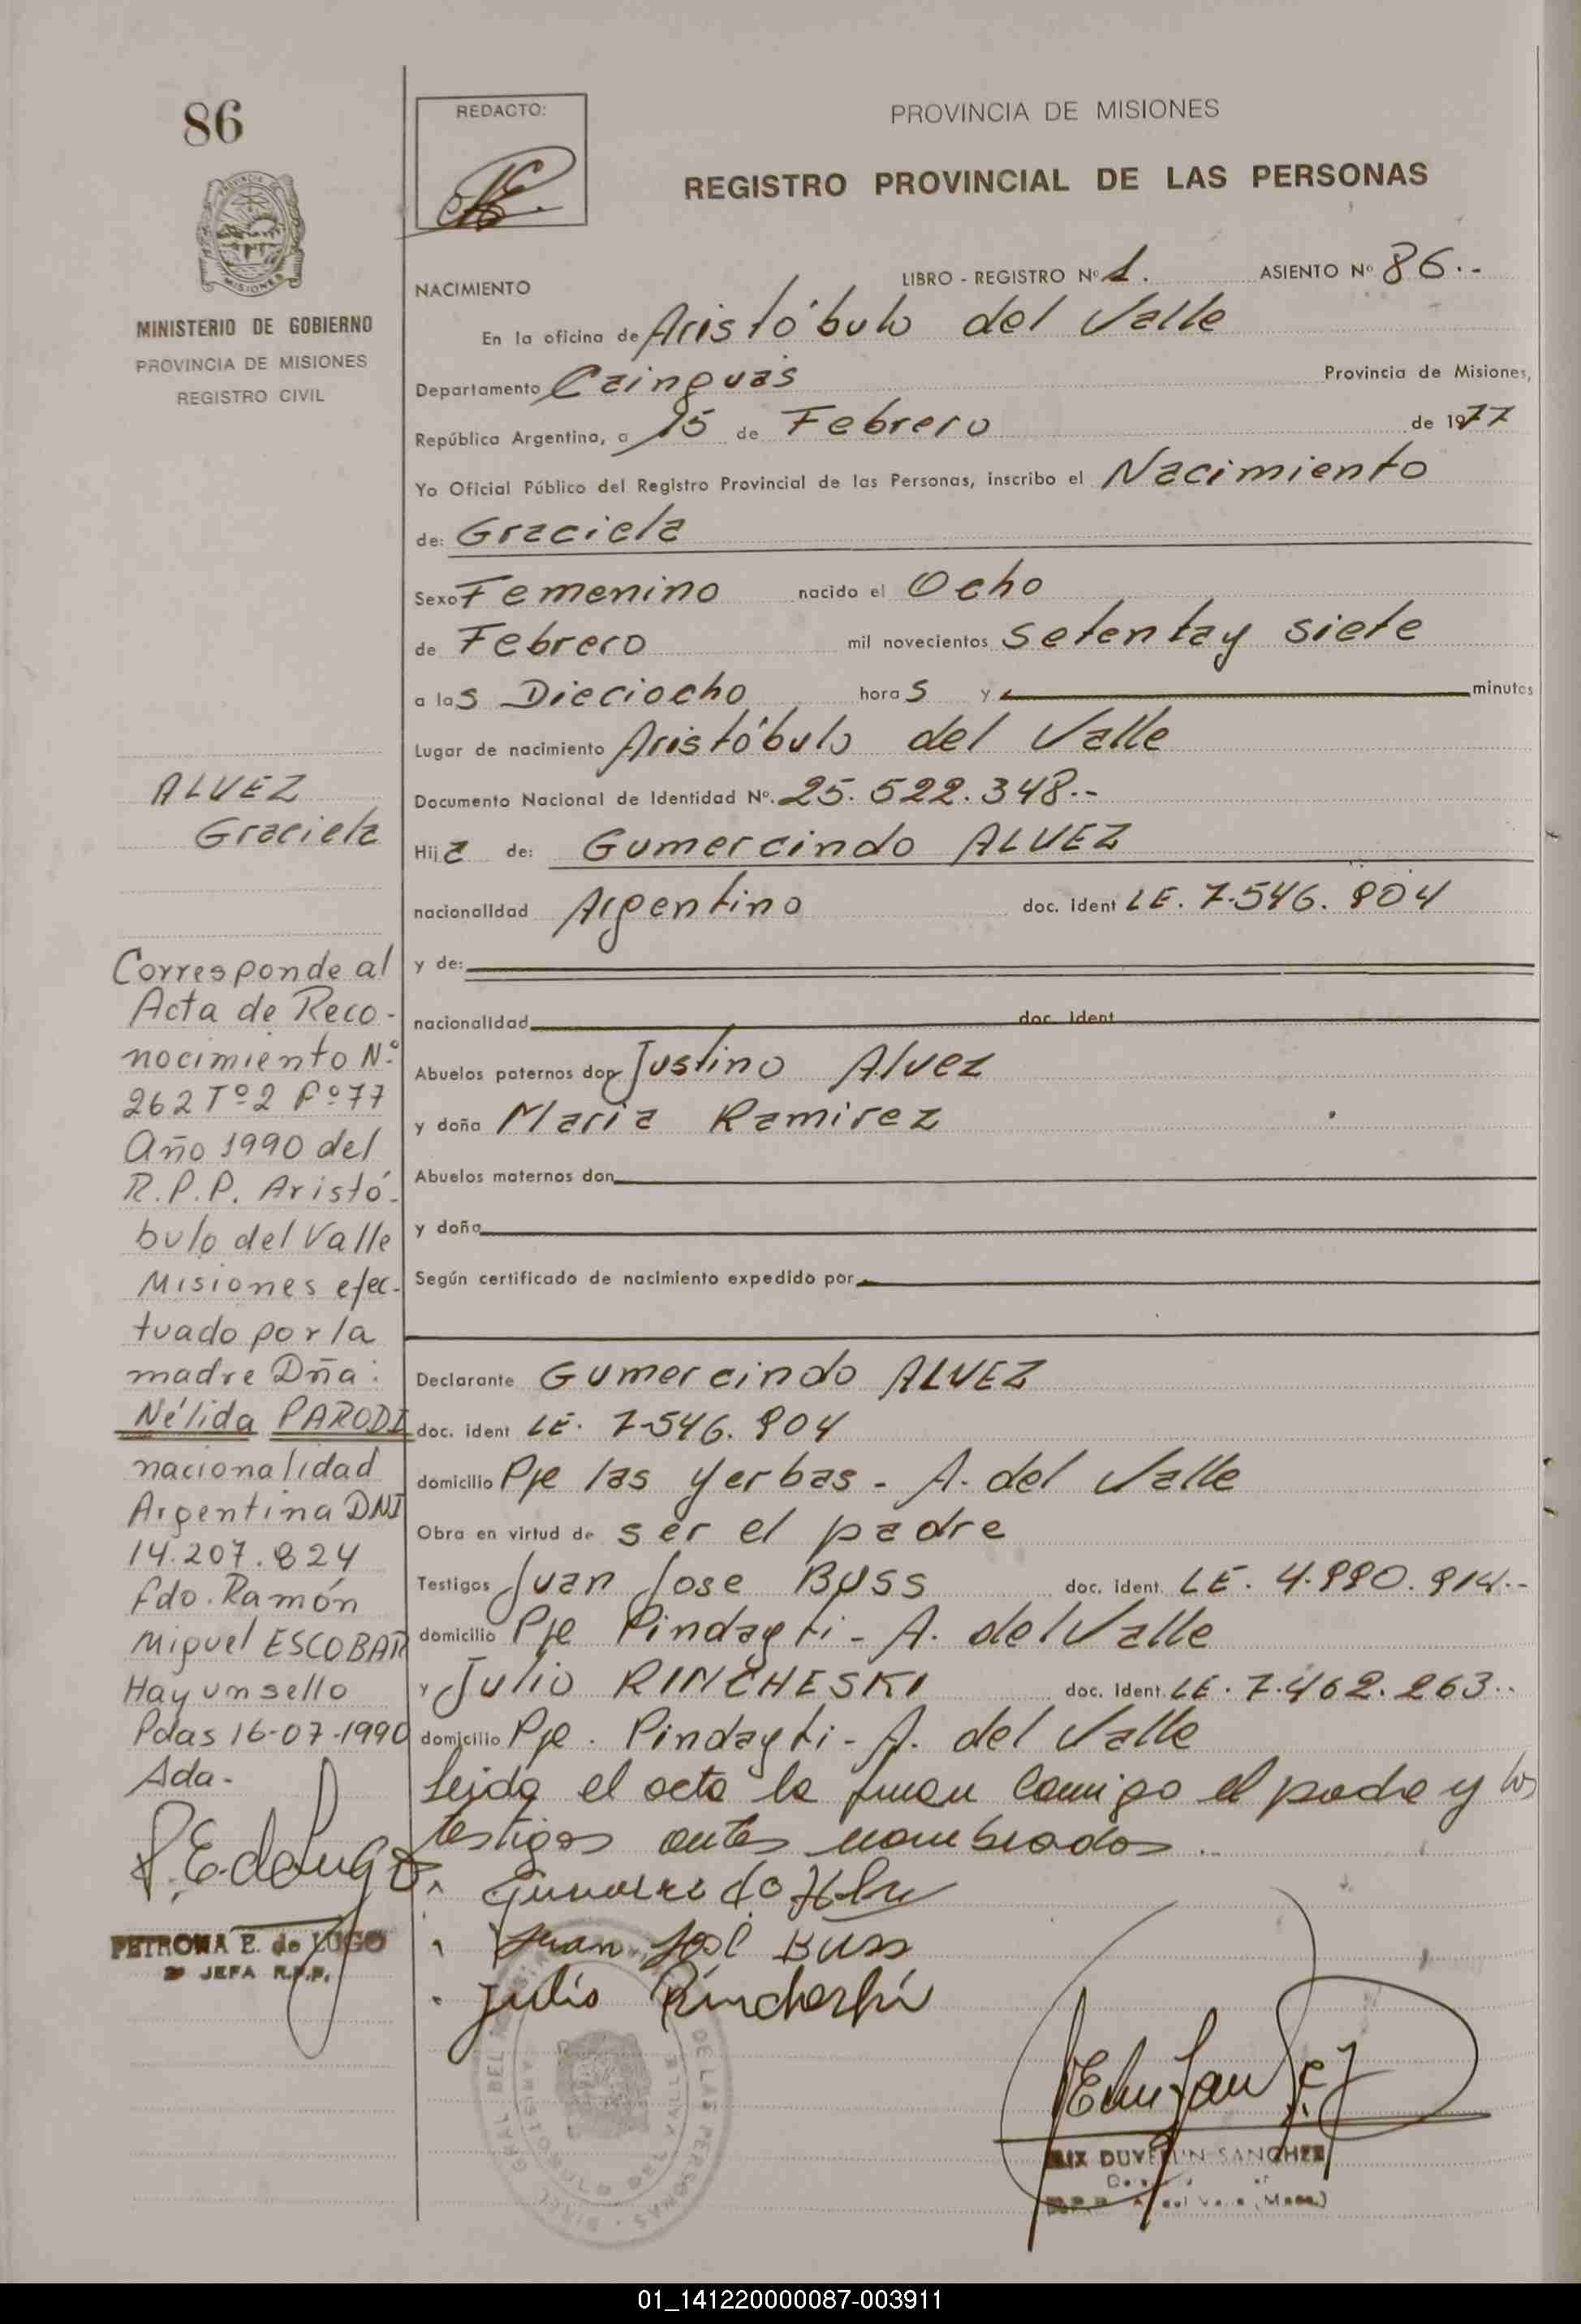 86
REDACTO:
PROVINCIA DE MISIONES
REGISTRO PROVINCIAL DE LAS PERSONAS
MINISTERIO DE GOBIERNO
PROVINCIA DE MISIONES
REGISTRO CIVIL
NACIMIENTO
LIBRO - REGISTRO Nº 1. ASIENTO Nº 86.-
En la oficina de Aristóbulo del Valle
Departamento Cainguas Provincia de Misiones,
República Argentina, a 15 de Febrero de 1977
Yo Oficial Público del Registro Provincial de las Personas, inscribo el Nacimiento
de: Graciela
Sexo Femenino nacido el Ocho
de Febrero mil novecientos setenta y siete
a las Dieciocho horas y minutos
Lugar de nacimiento Aristóbulo del Valle
Documento Nacional de Identidad Nº. 25.522.348.-
Hija de: Gumercindo ALVEZ
nacionalidad Argentino doc. ident LE. 7.546.904
y de:
nacionalidad doc. ident
Abuelos paternos don Justino Alvez
y doña Maria Ramirez
Abuelos maternos don
y doña
Según certificado de nacimiento expedido por
Declarante Gumercindo ALVEZ
doc. ident LE. 7.546.904
domicilio Pje las Yerbas - A. del Valle
Obra en virtud de ser el padre
Testigos Juan Jose BUSS doc. ident. LE. 4.990.914.-
domicilio Pje Pindayti - A. del Valle
y Julio RINCHESKI doc. ident. LE. 7.462.263.-
domicilio Pje. Pindayti - A. del Valle
Leida el acta la firman conmigo el padre y los
testigos antes nombrados.-
Juan José Buss
Julio
ALVEZ
Graciela
Corresponde al
Acta de Reco-
nocimiento Nº
262 Tº2 Fº77
Año 1990 del
R.P.P. Aristó-
bulo del Valle
Misiones efec-
tuado por la
madre Dña:
Nélida PARODI
nacionalidad
Argentina DNI
14.207.824
Fdo. Ramón
Miguel ESCOBAR
Hay un sello
Pdas 16-07-1990
Ada-
P.E.deLugo
PETRONA E. de LUGO
JEFA R.P.P.
DUVELIN SANCHEZ
01_141220000087-003911